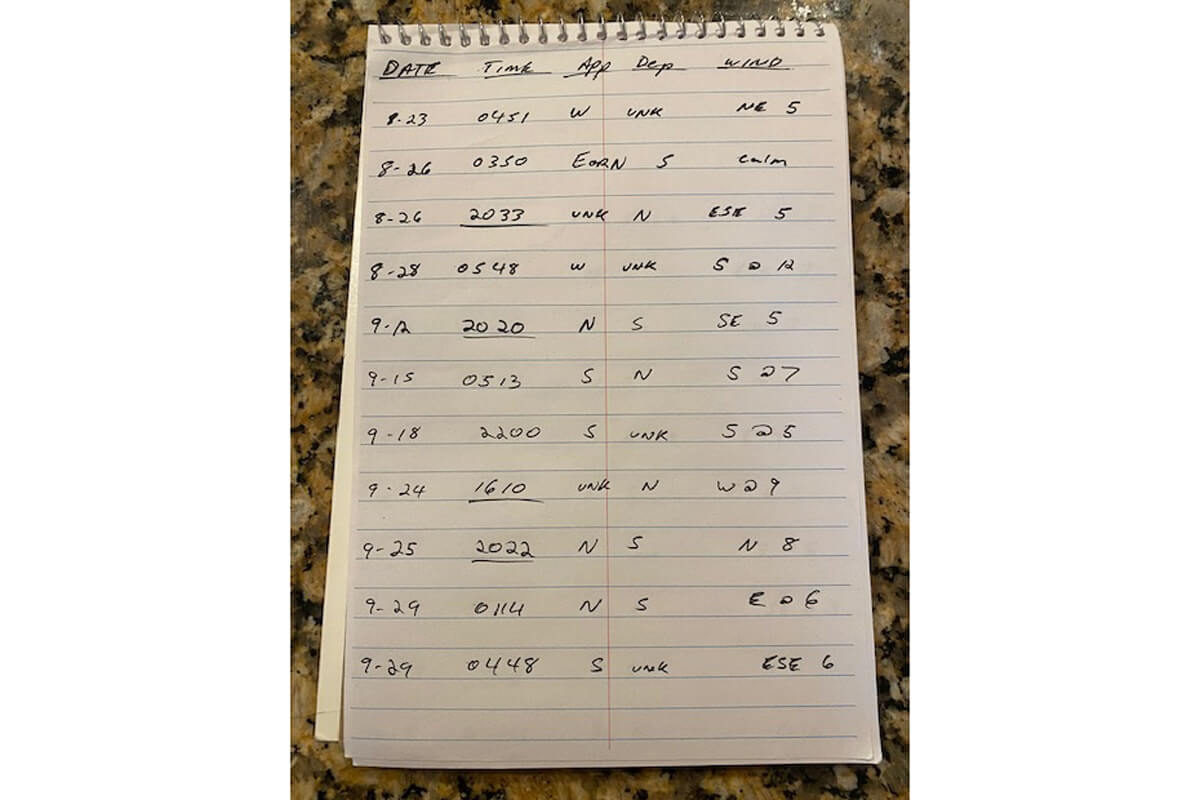 DATE TIME App Dep WIND
8-23 0451 W UNK NE 5
8-26 0350 E OR N S Calm
8-26 2033 UNK N ESE 5
8-28 0548 W UNK S @ 12
9-12 2020 N S SE 5
9-15 0513 S N S @ 7
9-18 2200 S UNK S @ 5
9-24 1610 UNK N W @ 9
9-25 2022 N S N 8
9-29 0114 N S E @ 6
9-29 0448 S UNK ESE 6